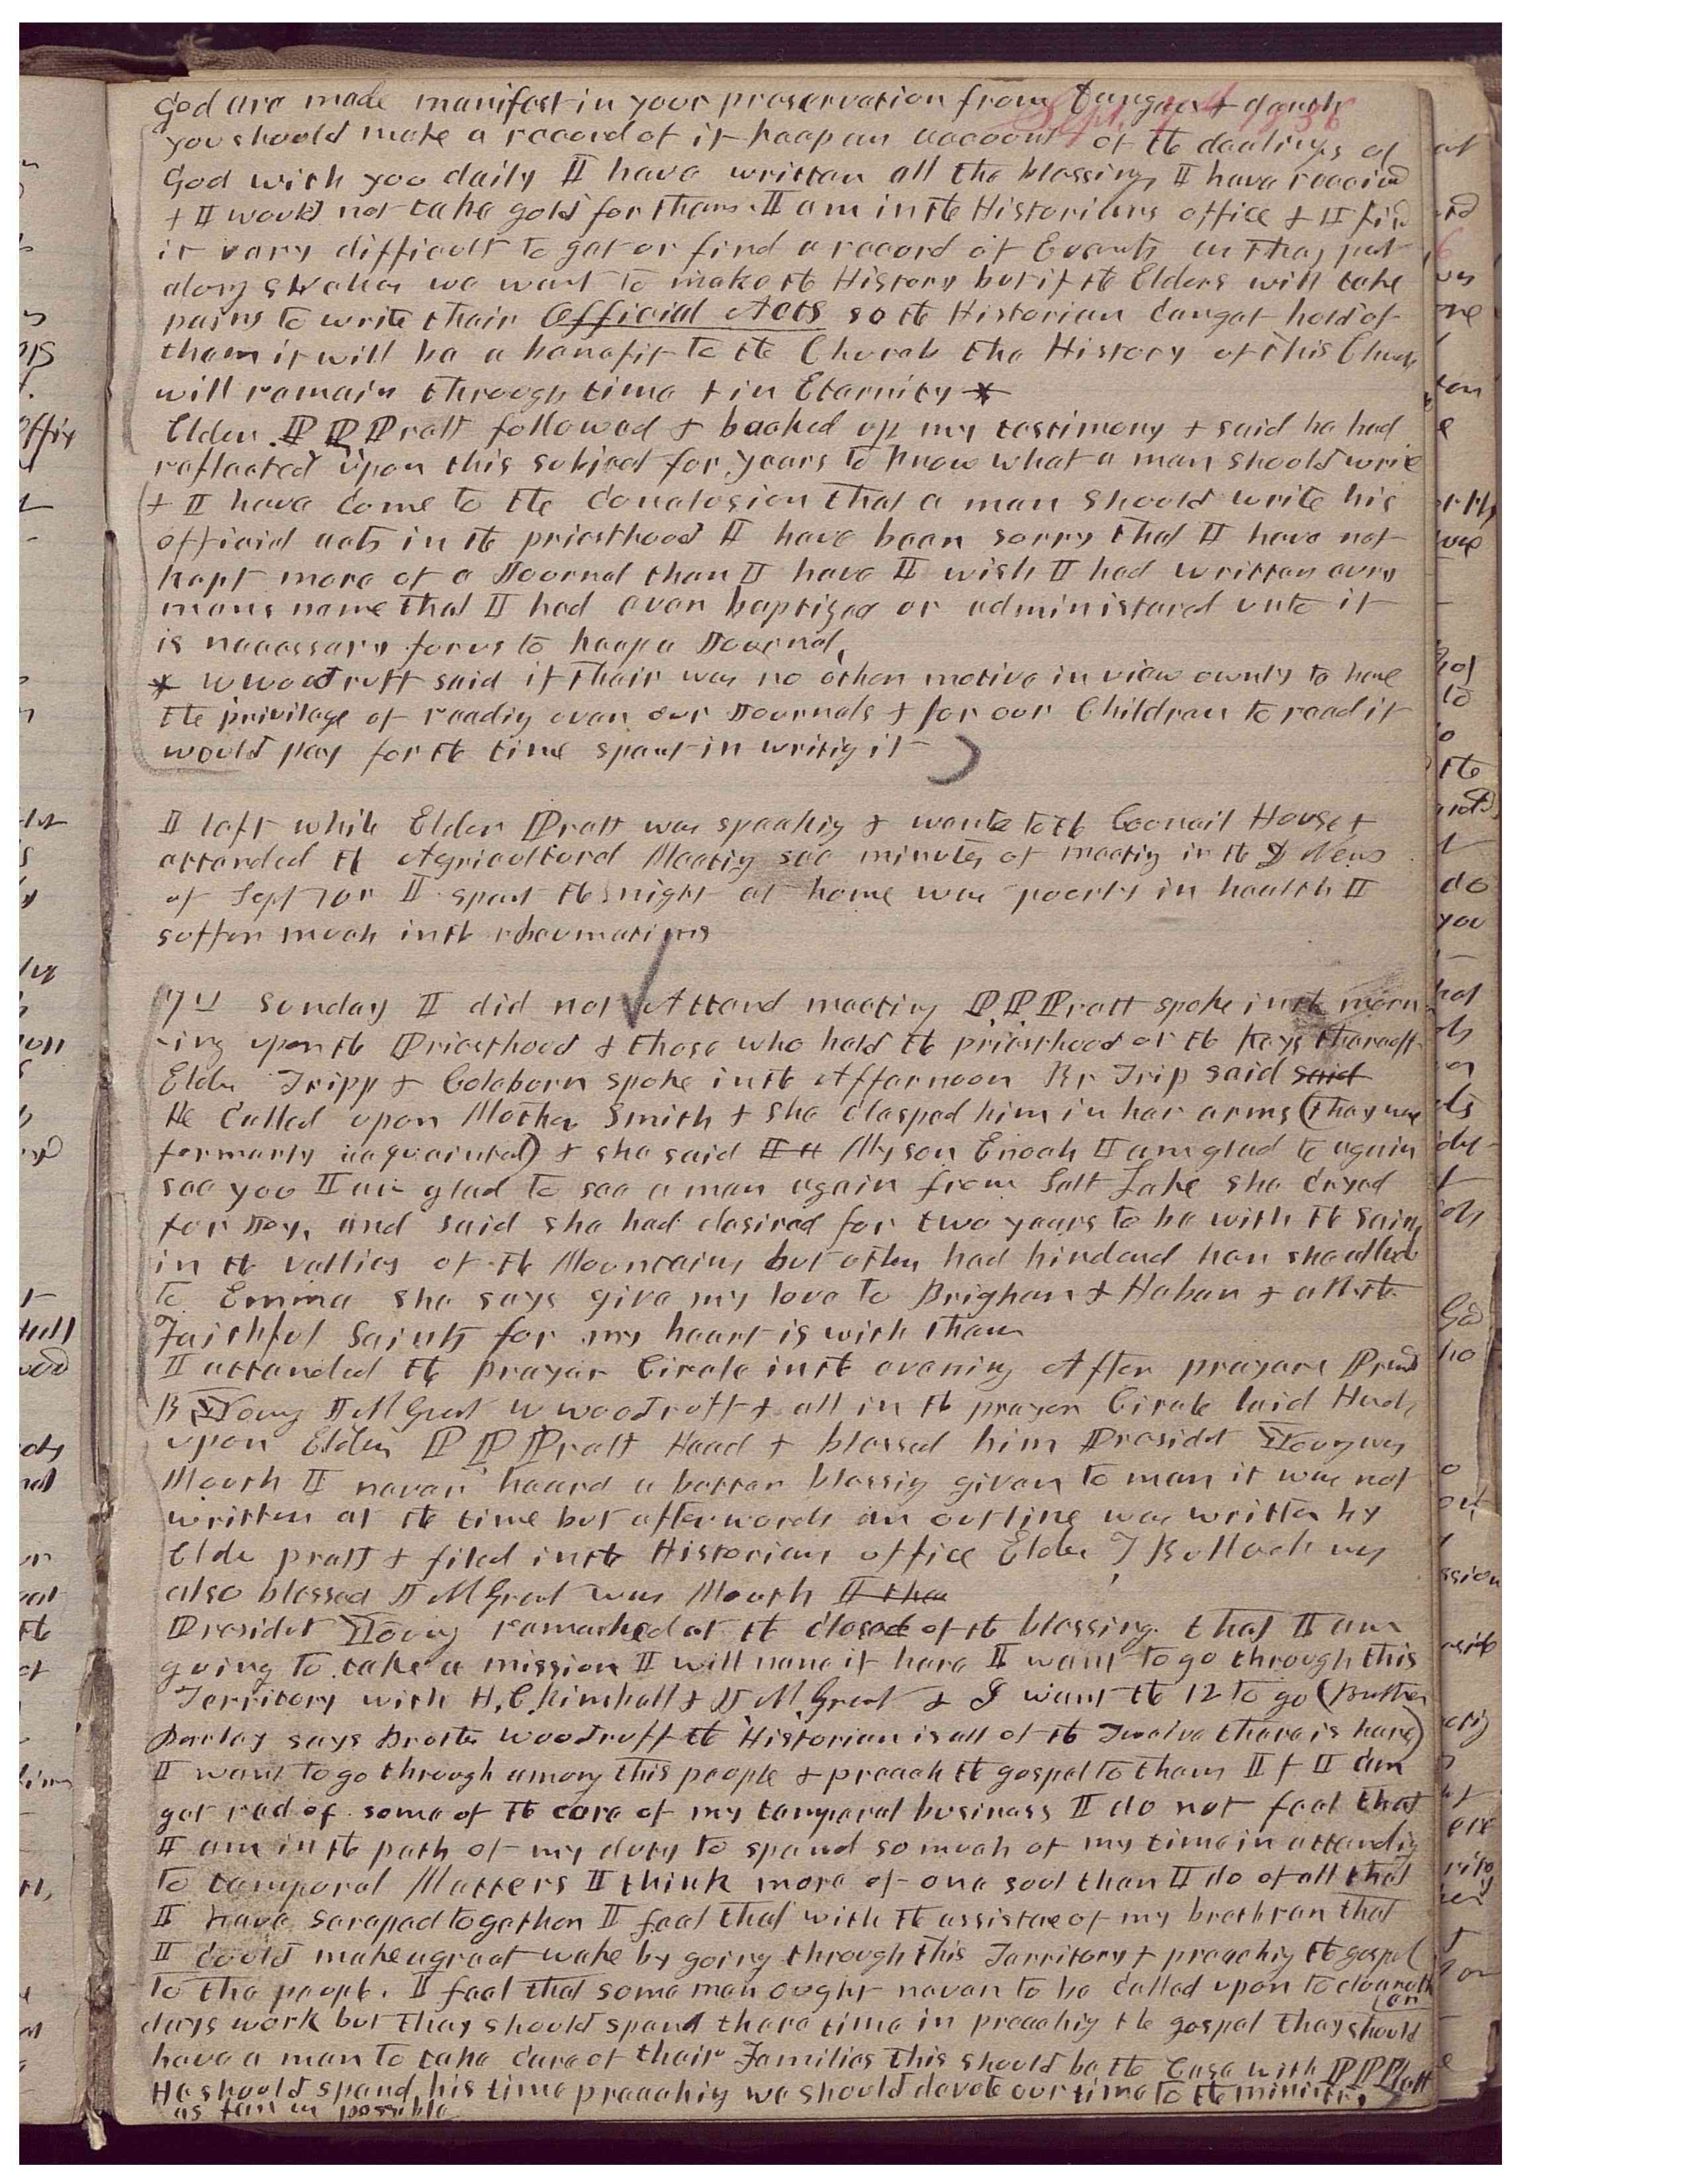 God are made manifest in your preservation from dangers & death
you should make a record of it keep an account of the dealings of
God with you daily I have written all the blessings I have received
& I would not take gold for them. I am in the Historians office & I find
it very difficult to get or find a record of Events
along when we want to make the History but if the Elders will take
pains to write their Official Acts so the Historian can get hold of
them it will be a benefit to the Church the History of this Church
will remain through time & in Eternity *
Elder P P Pratt followed & backed up my testimony & said he had
reflected upon this subject for years to know what a man should write
& I have come to the conclusion that a man should write his
official acts in the priesthood I have been sorry that I have not
kept more of a Journal than I have I wish I had written every
mans name that I had ever baptized or administered unto it
is necessary for us to keep a Journal,
* W Woodruff said if thair was no other motive in view ownly to have
the privilege of readig over our Journals & for our Children to read it
would pay for the time spent in writig it
I left while Elder Pratt was speakig & wente to the Council House &
attended the Agricultural Meetig see minutes of meetig in the D News
of Sept I spent the night at home was poorly in health I
suffer much in the rheumatims
7th Sunday I did not Attend meetig P. P. Pratt spoke in the morn
-ing upon the Priesthood & those who held the priesthood or the Keys thereof
Elder Tripp & Coleborn spoke in the Afternoon Br Trip said said
He called upon Mother Smith & she clasped him in her arms (they were
formerly acquainted) & she said My son Enoch I am glad to again
see you I am glad to see a man again from Salt Lake she cryed
for Joy, and said she had desired for two years to be with the Saints
in the vallies of the Mountains but others had hindered her she alluded
to Emma she says give my love to Brigham & Heber & all the
Faithful Saints for my heart is with them
I attended the prayer Circle in the evening After prayers Presid
B Young J M Grant W Woodruff & all in the prayer Circle laid Hands
upon Elder P P Pratt Head & blessed him Presidet Young was
Mouth I never heard a better blessig given to man it was not
written at the time but afterwords an outline was written by
Elder pratt & filed in the Historians office Elder T Bullock was
also blessed J M Grant was Mouth I the
Presidet Young remarked at the close of the blessing. that I am
going to take a mission I will name it here I want to go through this
Territory with H. C. Kimball & J M. Grant & I want the 12 to go (Brother
Parley says Brother Woodruff the Historian is all of the Twelve there is here)
I want to go through among this people & preach the gospel to them If I can
get red of some of the care of my temperal business I do not feel that
I am in the path of my duty to spend so much of my time in attendig
to temporal Matters I think more of one soul than I do of all that
I have scraped together I feel that with the assistace of my brethren that
I could make a great wake by going through this Territory & preachig the gospel
to the people. I feel that some men ought never to be called upon to do another
days work but they should spend there time in preachig the gospel they should
have a man to take care of their Families this should be the Case with P P Pratt
He should spend his time preachig we should devote our time to the ministry
as far as possible